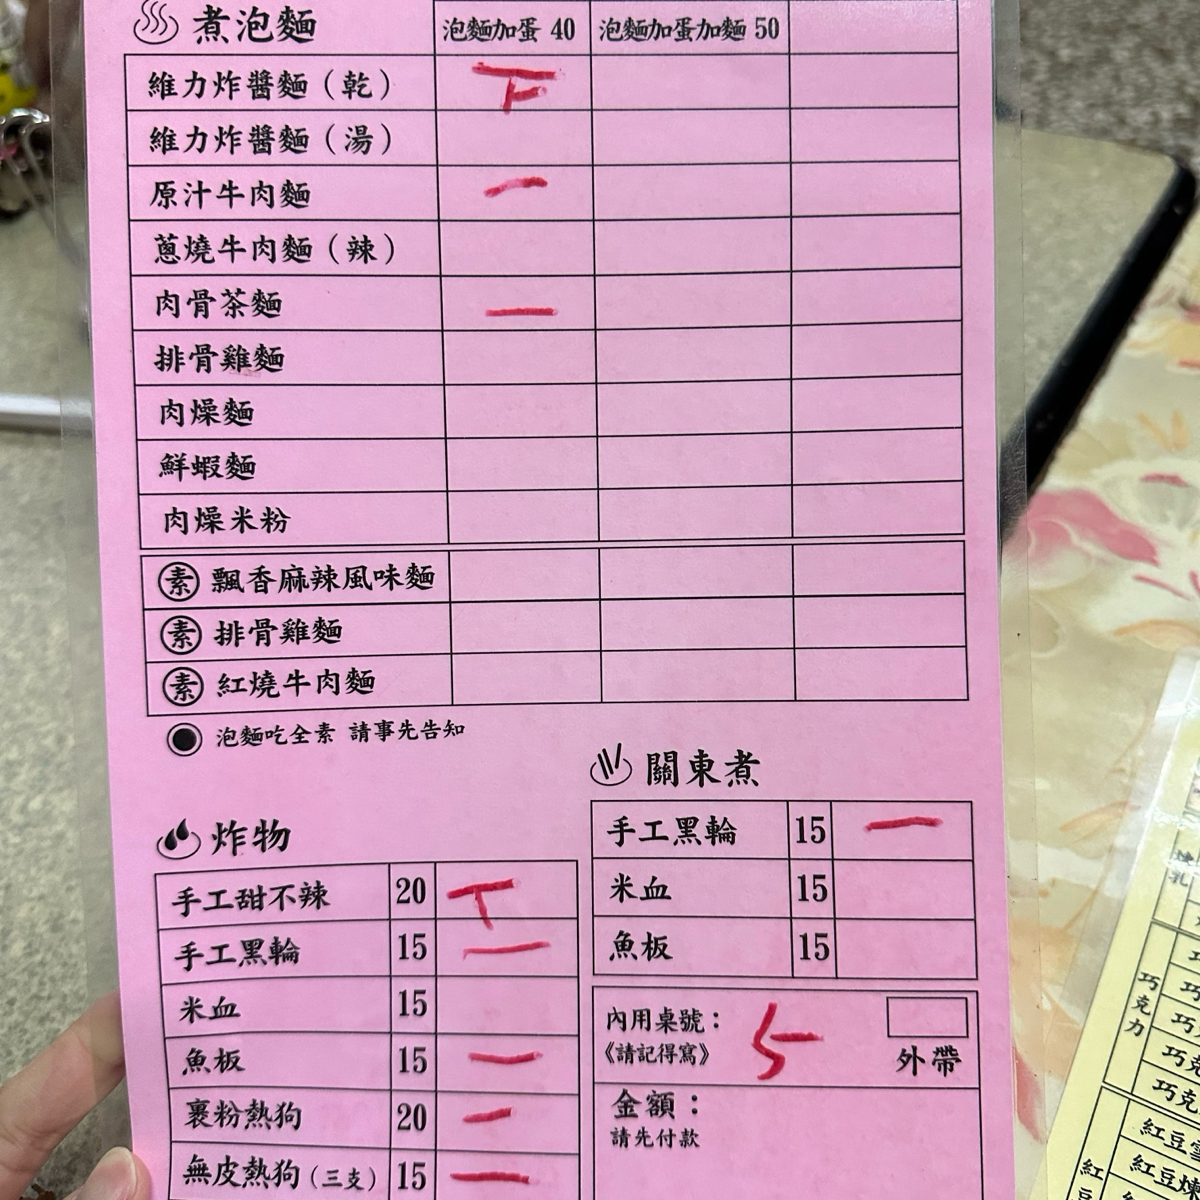 煮泡麵
泡麵加蛋 40 泡麵加蛋加麵 50
維力炸醬麵（乾） 下
維力炸醬麵（湯）
原汁牛肉麵 一
蔥燒牛肉麵（辣）
肉骨茶麵 一
排骨雞麵
肉燥麵
鮮蝦麵
肉燥米粉
素 飄香麻辣風味麵
素 排骨雞麵
素 紅燒牛肉麵
泡麵吃全素 請事先告知
炸物
手工甜不辣 20 T
手工黑輪 15 一
米血 15
魚板 15 一
裹粉熱狗 20 一
無皮熱狗（三支） 15 一
關東煮
手工黑輪 15 一
米血 15
魚板 15
內用桌號： 5
《請記得寫》
外帶
金額：
請先付款
煉乳
巧克力
巧克
巧克
紅豆
紅豆
紅豆